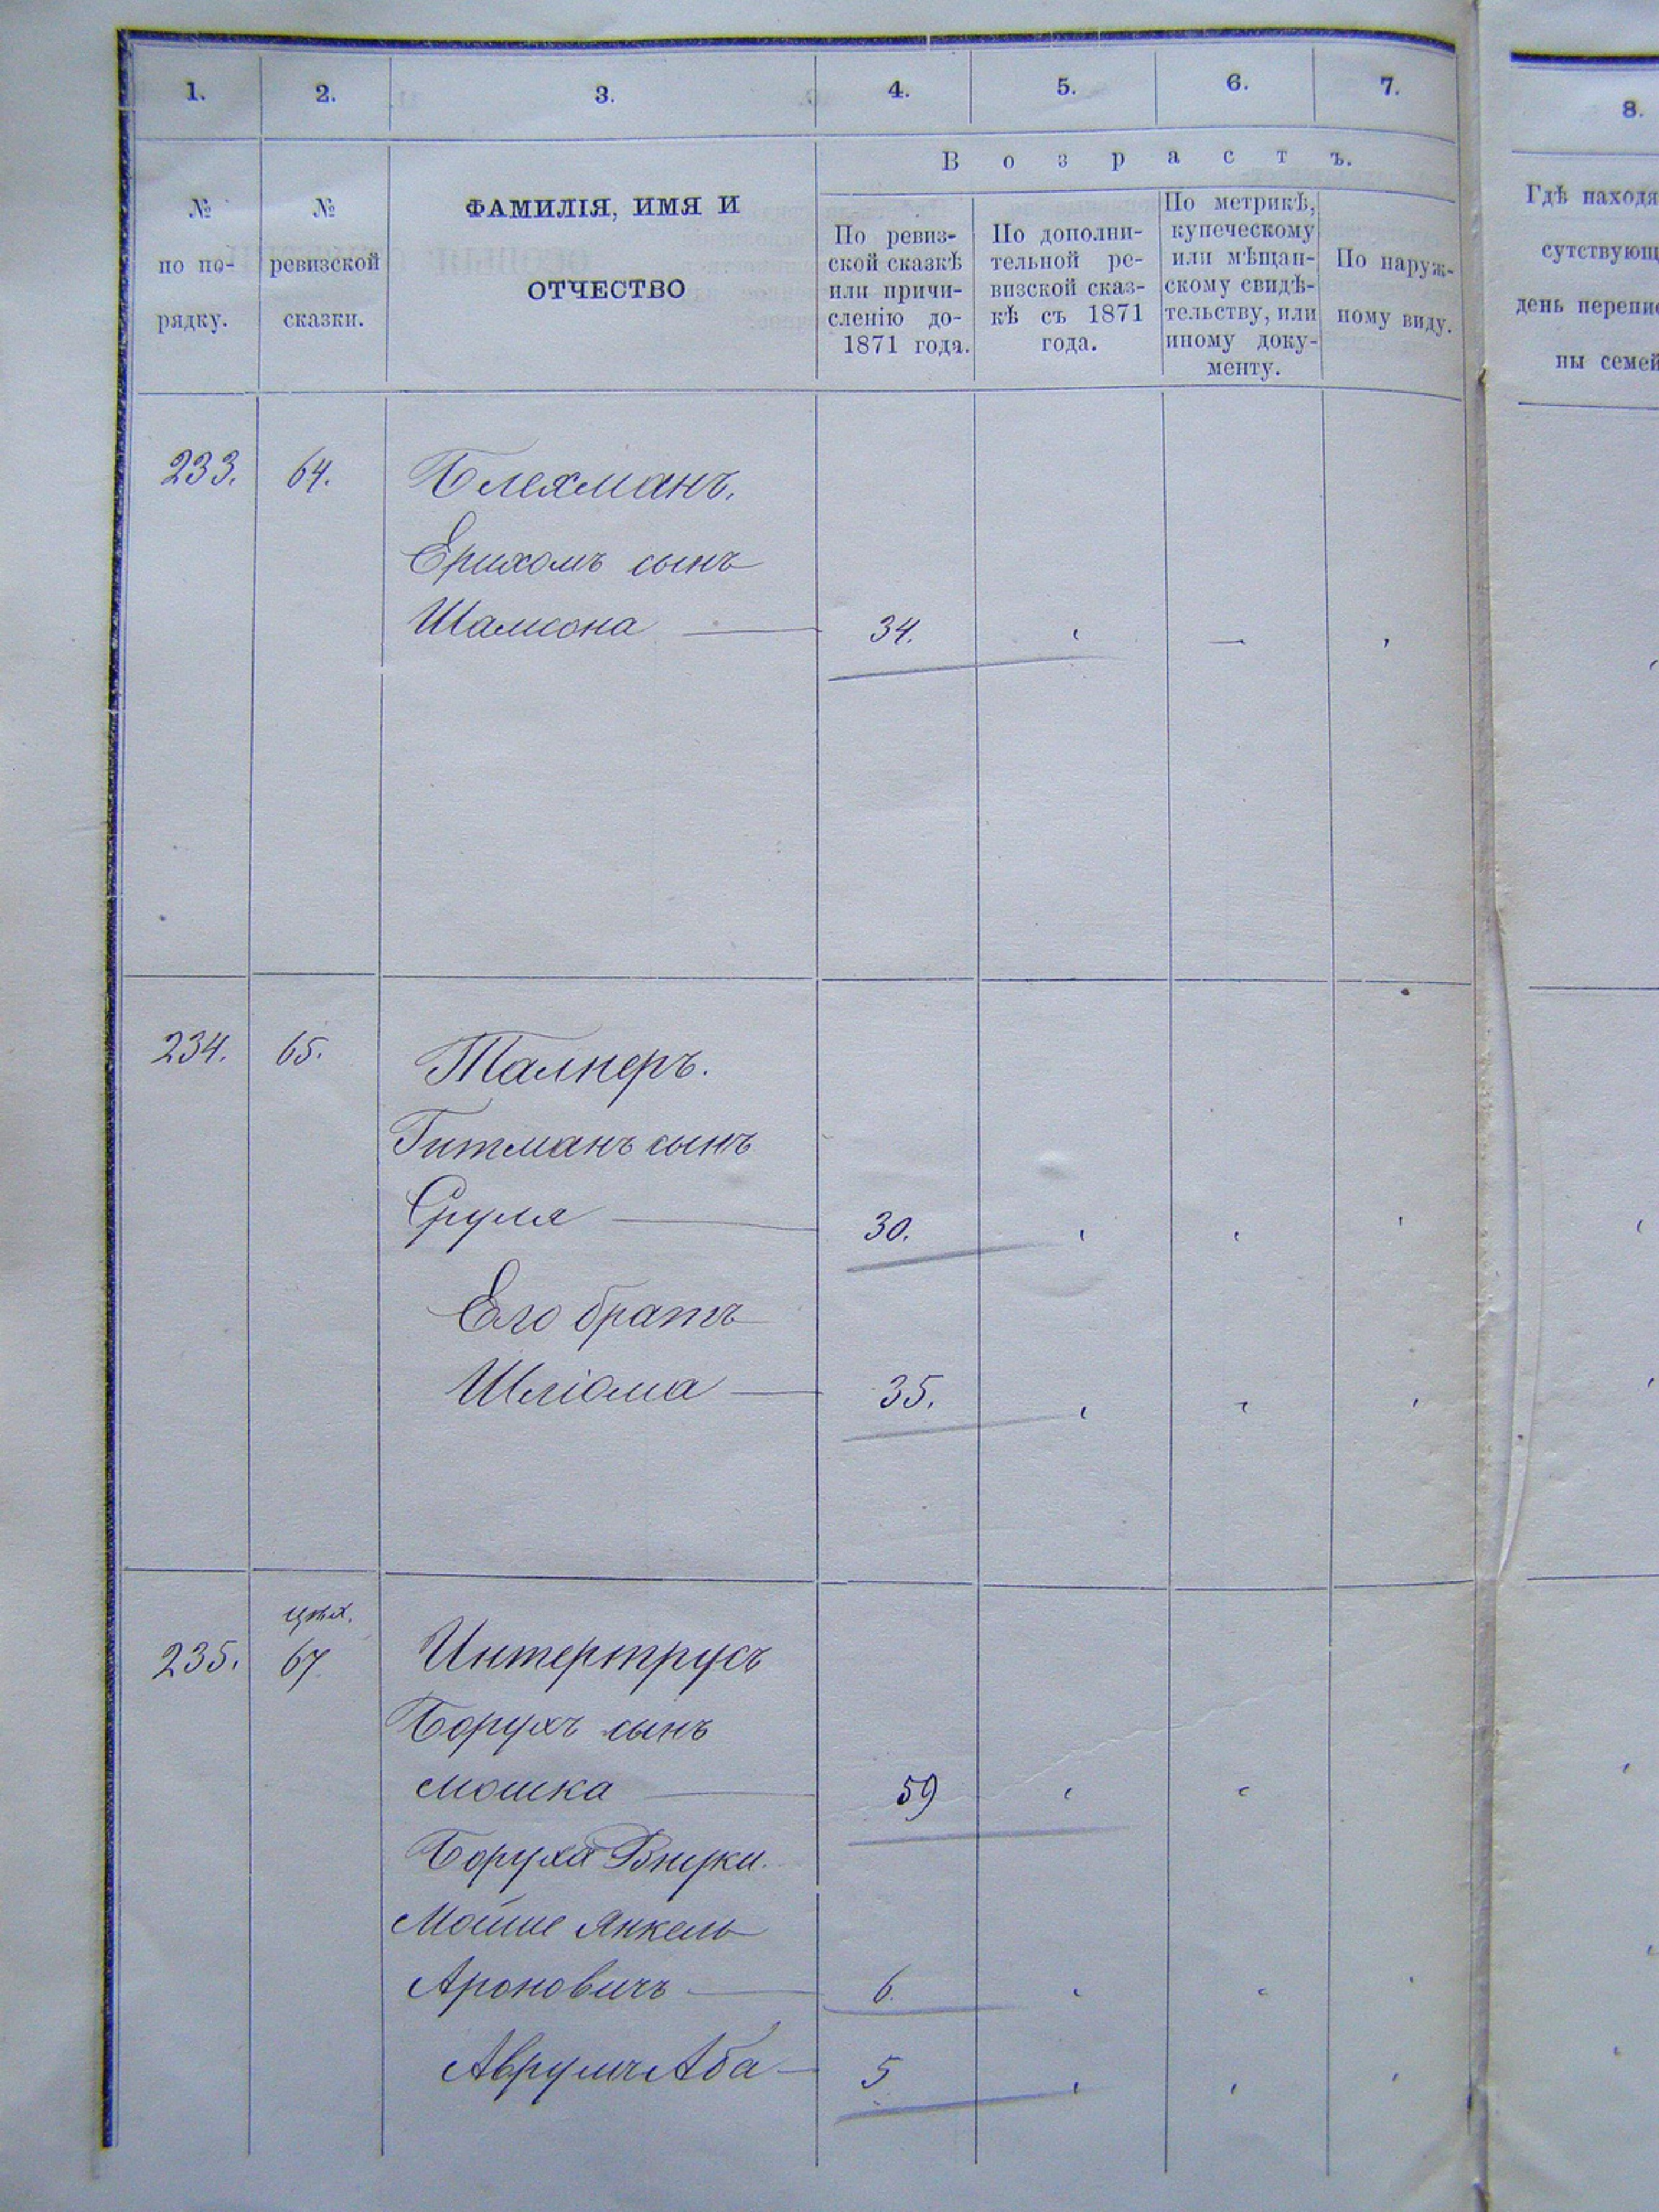 1. 2. 3. 4. 5. 6. 7. 8.
Возрастъ.
№ по порядку.
№ ревизской сказки.
ФАМИЛІЯ, ИМЯ И
ОТЧЕСТВО
По ревиз-
ской сказкѣ
или причи-
сленію до-
1871 года.
По дополни-
тельной ре-
визской сказ-
кѣ съ 1871
года.
По метрикѣ,
купеческому
или мѣщан-
скому свидѣ-
тельству, или
иному доку-
менту.
По наруж-
ному виду.
Гдѣ находя
сутствующ
день перепис
ны семей
233. 64. Блехманъ.
Ерихомъ сынъ
Шамсона 34.
234. 65. Талнеръ.
Гитманъ сынъ
Сруля 30.
Его братъ
Шліома 35.
цех.
235. 67. Интертрусъ
Борухъ сынъ
Мошка 59
Боруха Внуки.
Мойше Янкель
Ароновичъ 6.
Аврумъ Аба 5